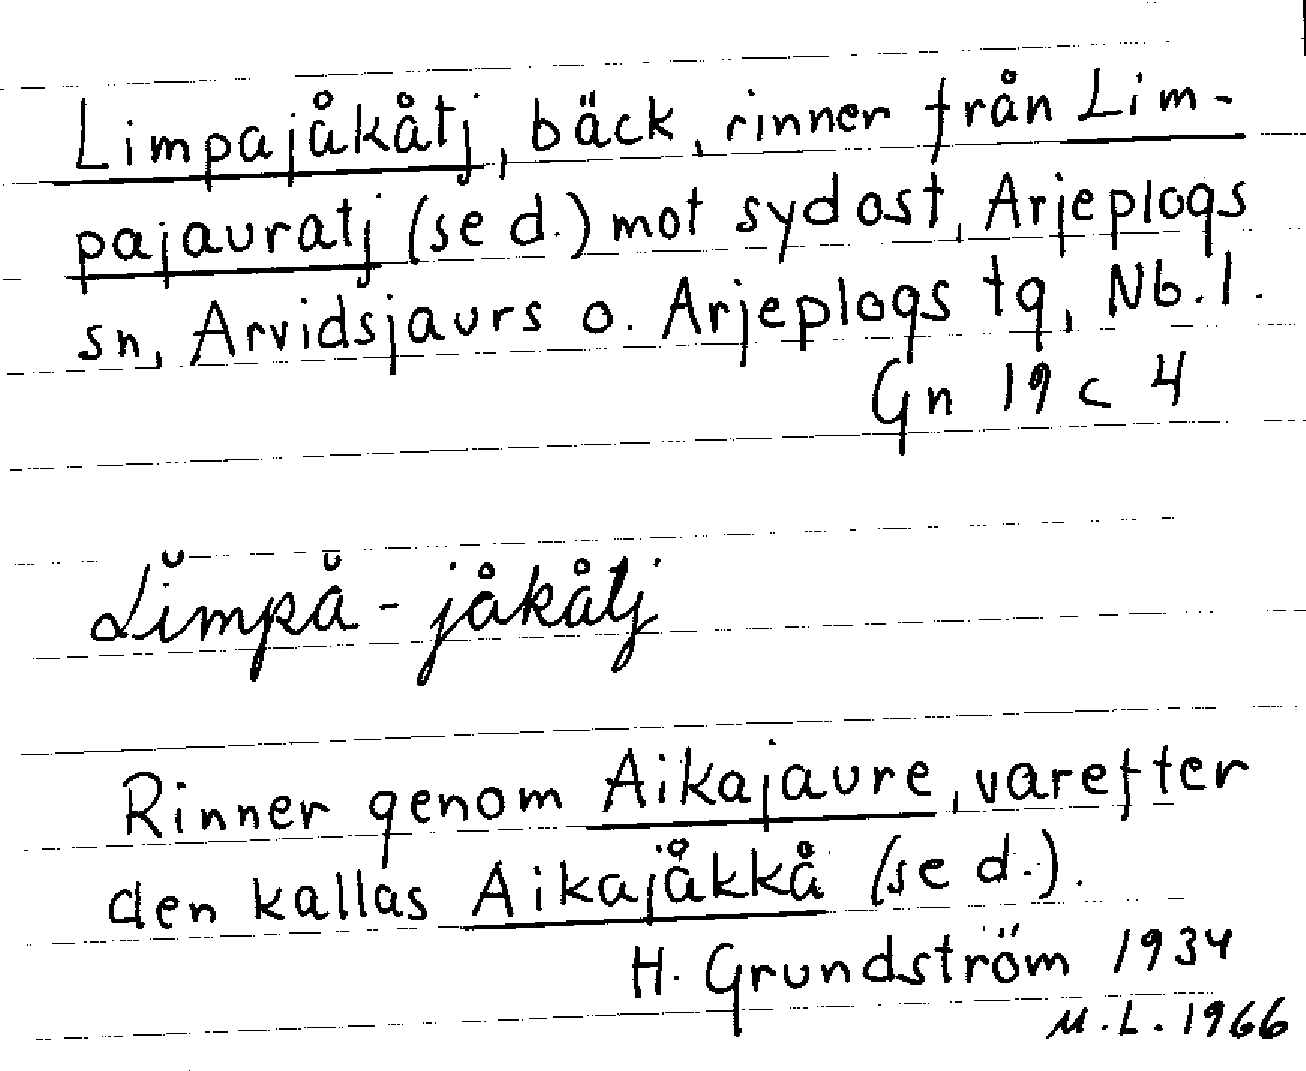 Limpajåkåtj, bäck, rinner från Lim-
pajauratj (se d.) mot sydost, Arjeplogs
sn, Arvidsjaurs o. Arjeplogs tg, Nb. l.
Gn 19 c 4
Lĭmpå̆ - jåkåtj
Rinner genom Aikajaure, varefter
den kallas Aikajåkkå (se d.).
H. Grundström 1934
M.L. 1966